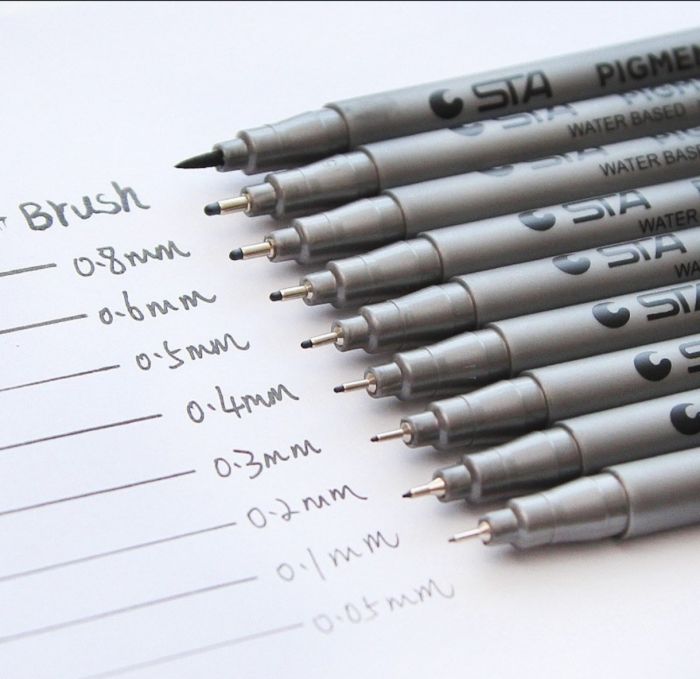 STA PIGMEN
WATER BASED
WATER BASE
STA
WATER
STA
WA
STA
S
Brush
0.8mm
0.6mm
0.5mm
0.4mm
0.3mm
0.2mm
0.1mm
0.05mm